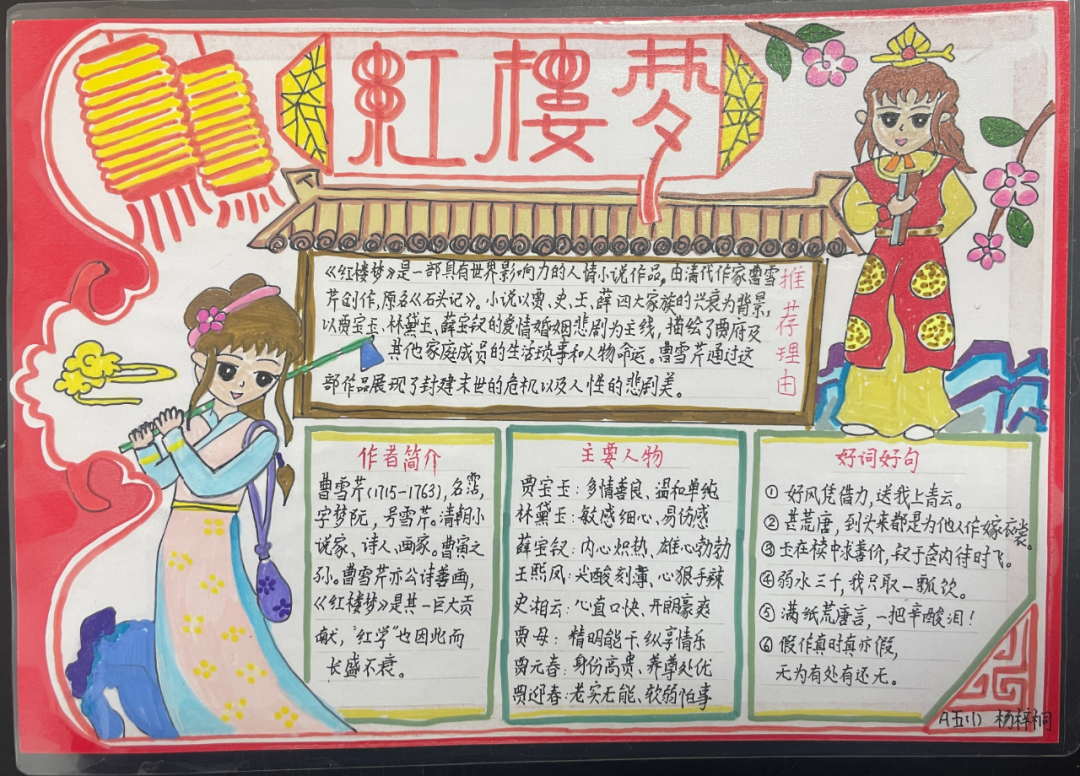 紅樓梦
推荐理由
《红楼梦》是一部具有世界影响力的人情小说作品,由清代作家曹雪
芹创作,原名《石头记》。小说以贾、史、王、薛四大家族的兴衰为背景,
以贾宝玉、林黛玉、薛宝钗的爱情婚姻悲剧为主线,描绘了贾府及
其他家庭成员的生活琐事和人物命运。曹雪芹通过这
部作品展现了封建末世的危机以及人性的悲剧美。
作者简介
曹雪芹(1715-1763),名霑,
字梦阮,号雪芹。清朝小
说家、诗人、画家。曹寅之
孙。曹雪芹亦公诗善画,
《红楼梦》是其一巨大贡
献,“红学”也因此而
长盛不衰。
主要人物
贾宝玉:多情善良、温和单纯
林黛玉:敏感细心、易伤感
薛宝钗:内心炽热、雄心勃勃
王熙凤:尖酸刻薄、心狠手辣
史湘云:心直口快、开朗豪爽
贾母:精明能干、纵享情乐
贾元春:身份高贵、养尊处优
贾迎春:老实无能、软弱怕事
好词好句
① 好风凭借力,送我上青云。
② 甚荒唐,到头来都是为他人作嫁衣裳。
③ 玉在椟中求善价,钗于奁内待时飞。
④ 弱水三千,我只取一瓢饮。
⑤ 满纸荒唐言,一把辛酸泪!
⑥ 假作真时真亦假,
无为有处有还无。
A五(1) 杨梓桐